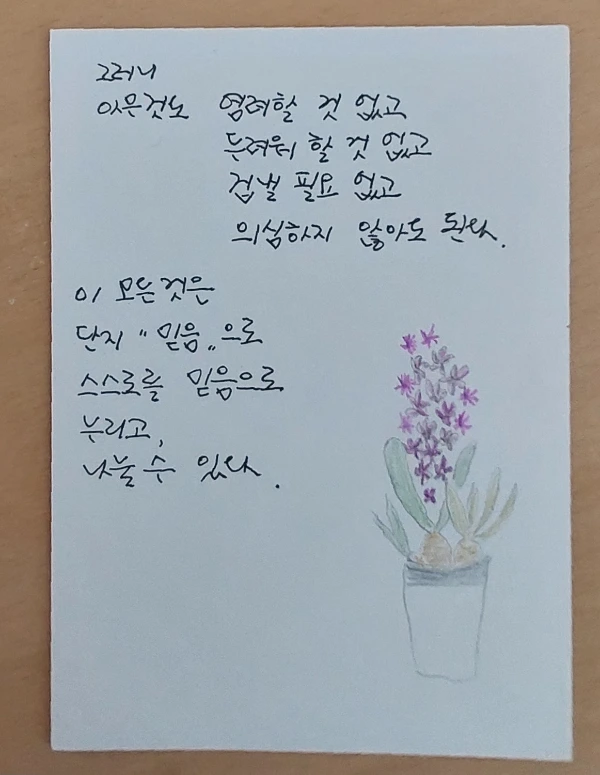 그러니
아무것도 염려할 것 없고
두려워 할 것 없고
겁낼 필요 없고
의심하지 않아도 된다.
이 모든것은
단지 "믿음„으로
스스로를 믿음으로
누리고,
나눌 수 있다.